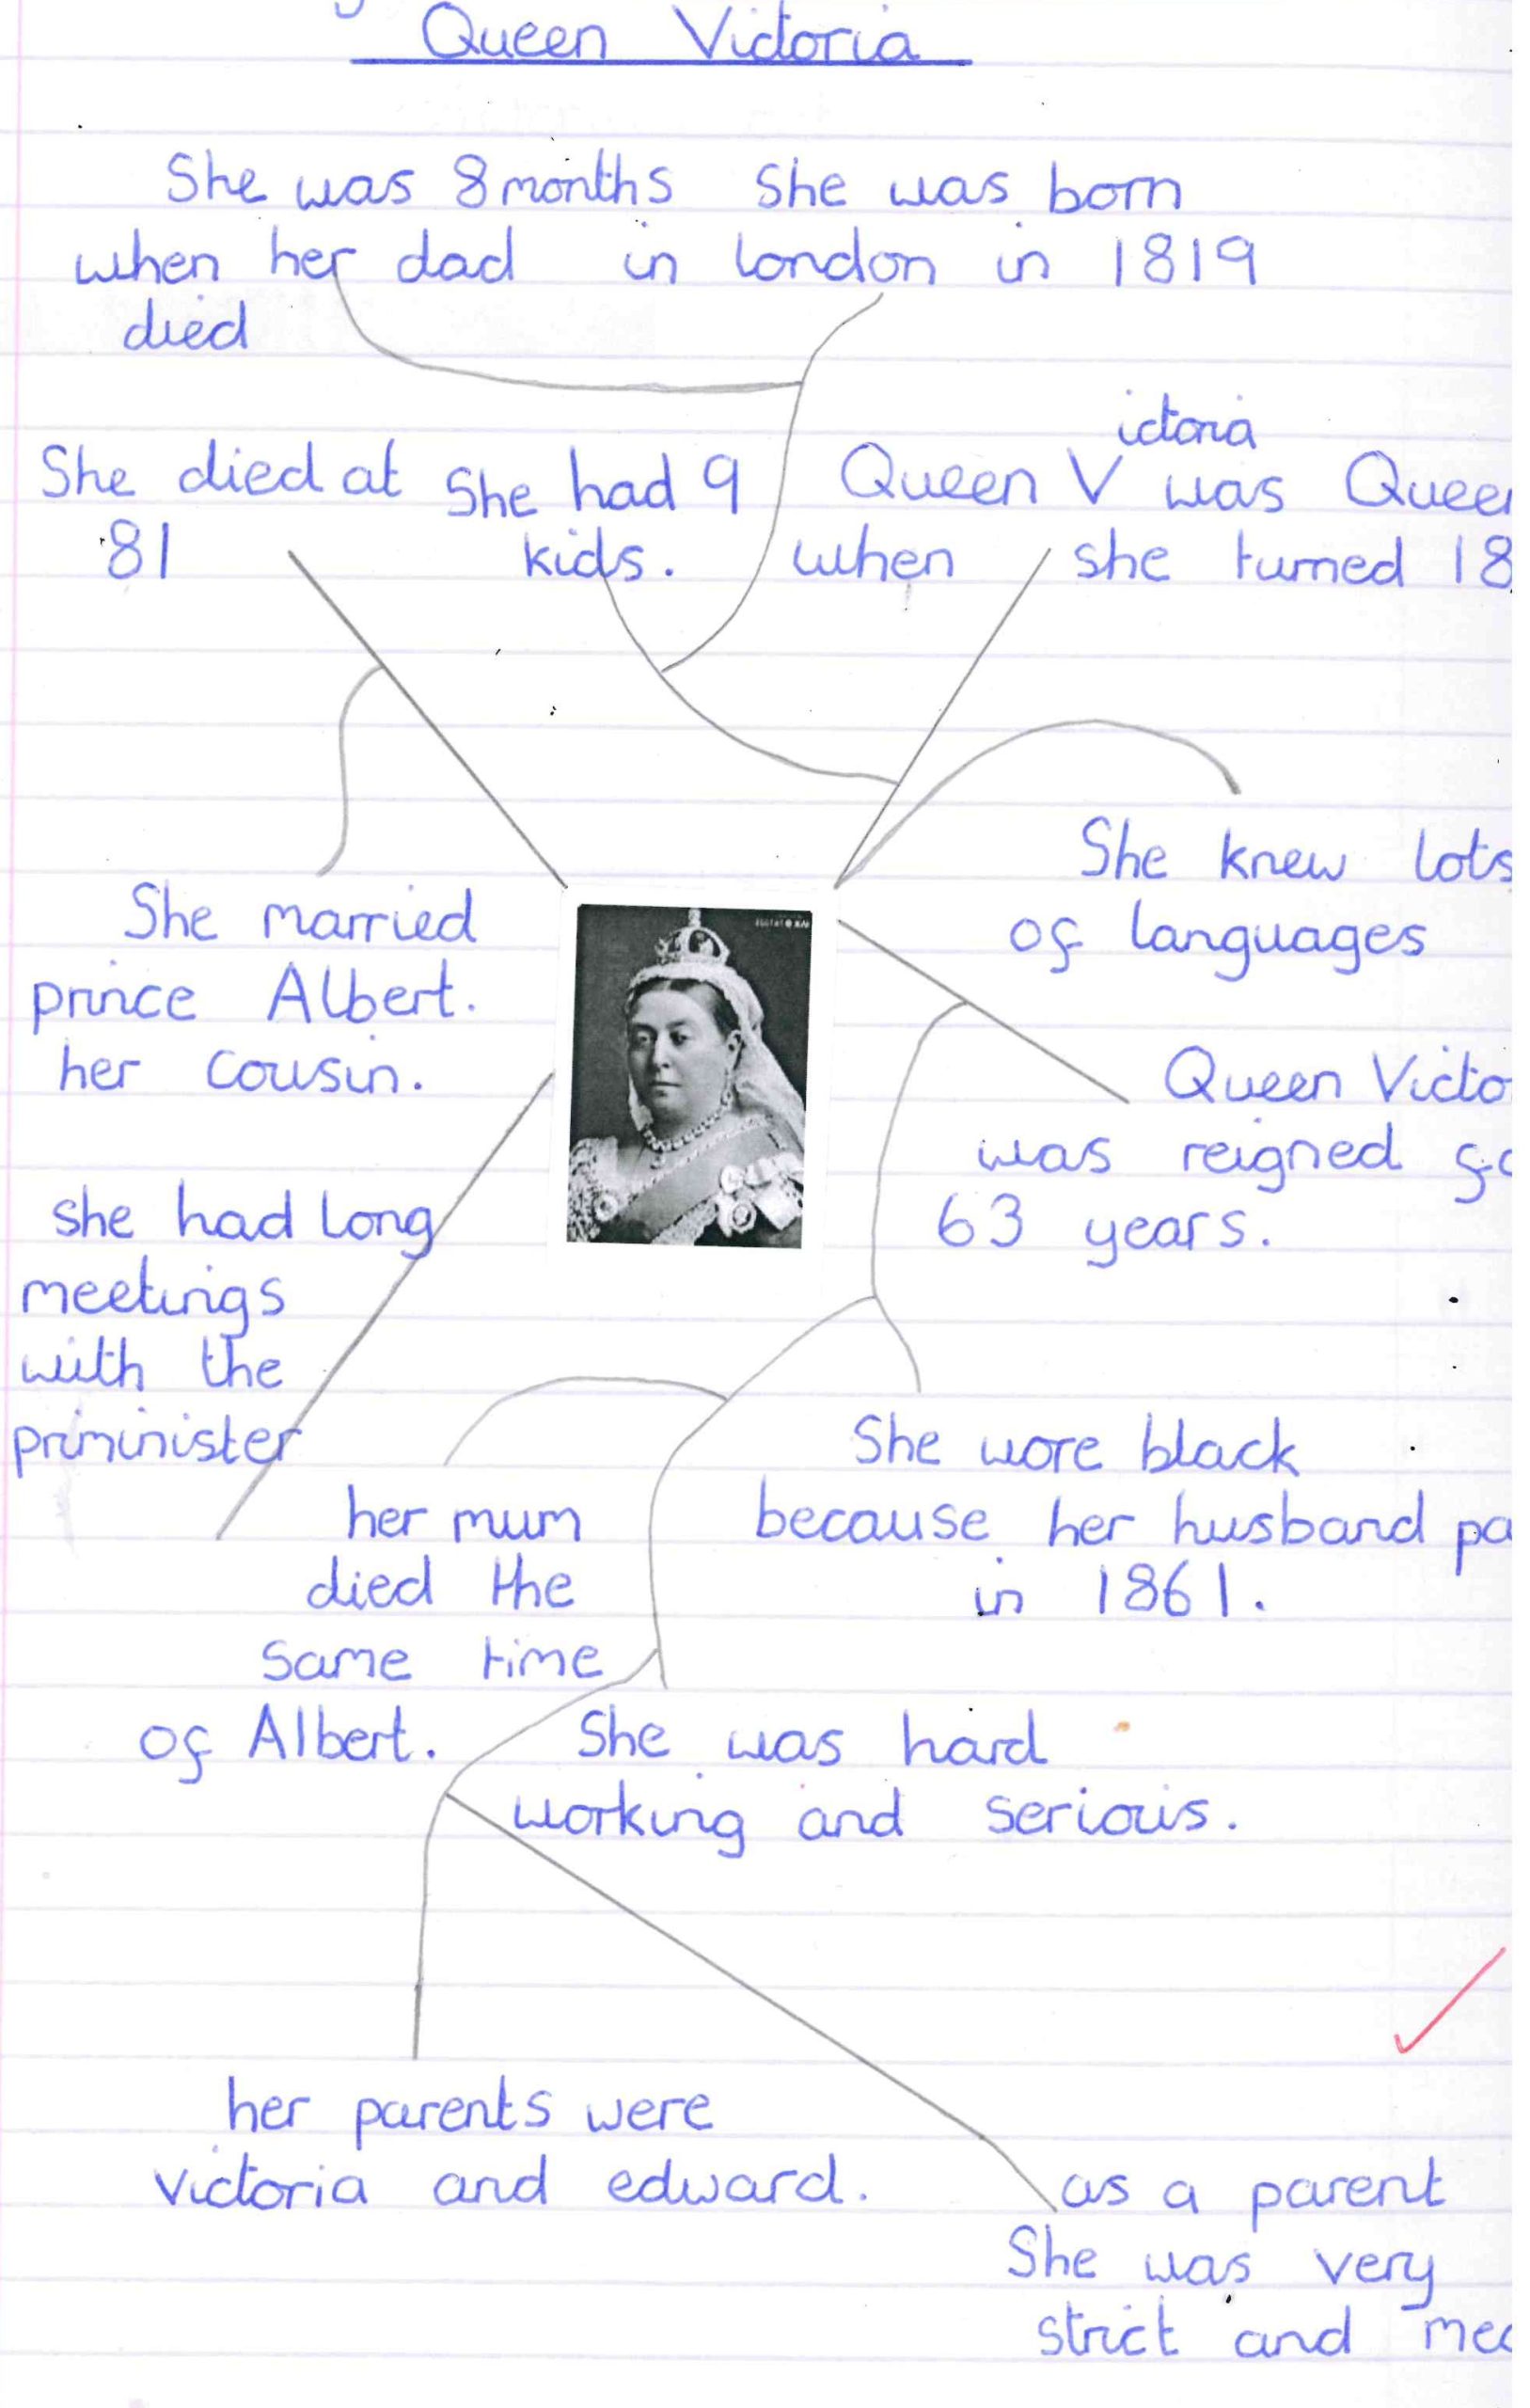 Queen Victoria
She was 8 months
when her dad
died
She was born
in london in 1819
She died at
81
She had 9
kids.
ictoria
Queen V was Queen
when she turned 18
She knew lots
of languages
She married
prince Albert.
her cousin.
Queen Victo
was reigned fo
63 years.
she had long
meetings
with the
priminister
She wore black
because her husband pa
in 1861.
her mum
died the
same time
of Albert.
She was hard
working and serious.
her parents were
victoria and edward.
as a parent
She was very
strict and mea